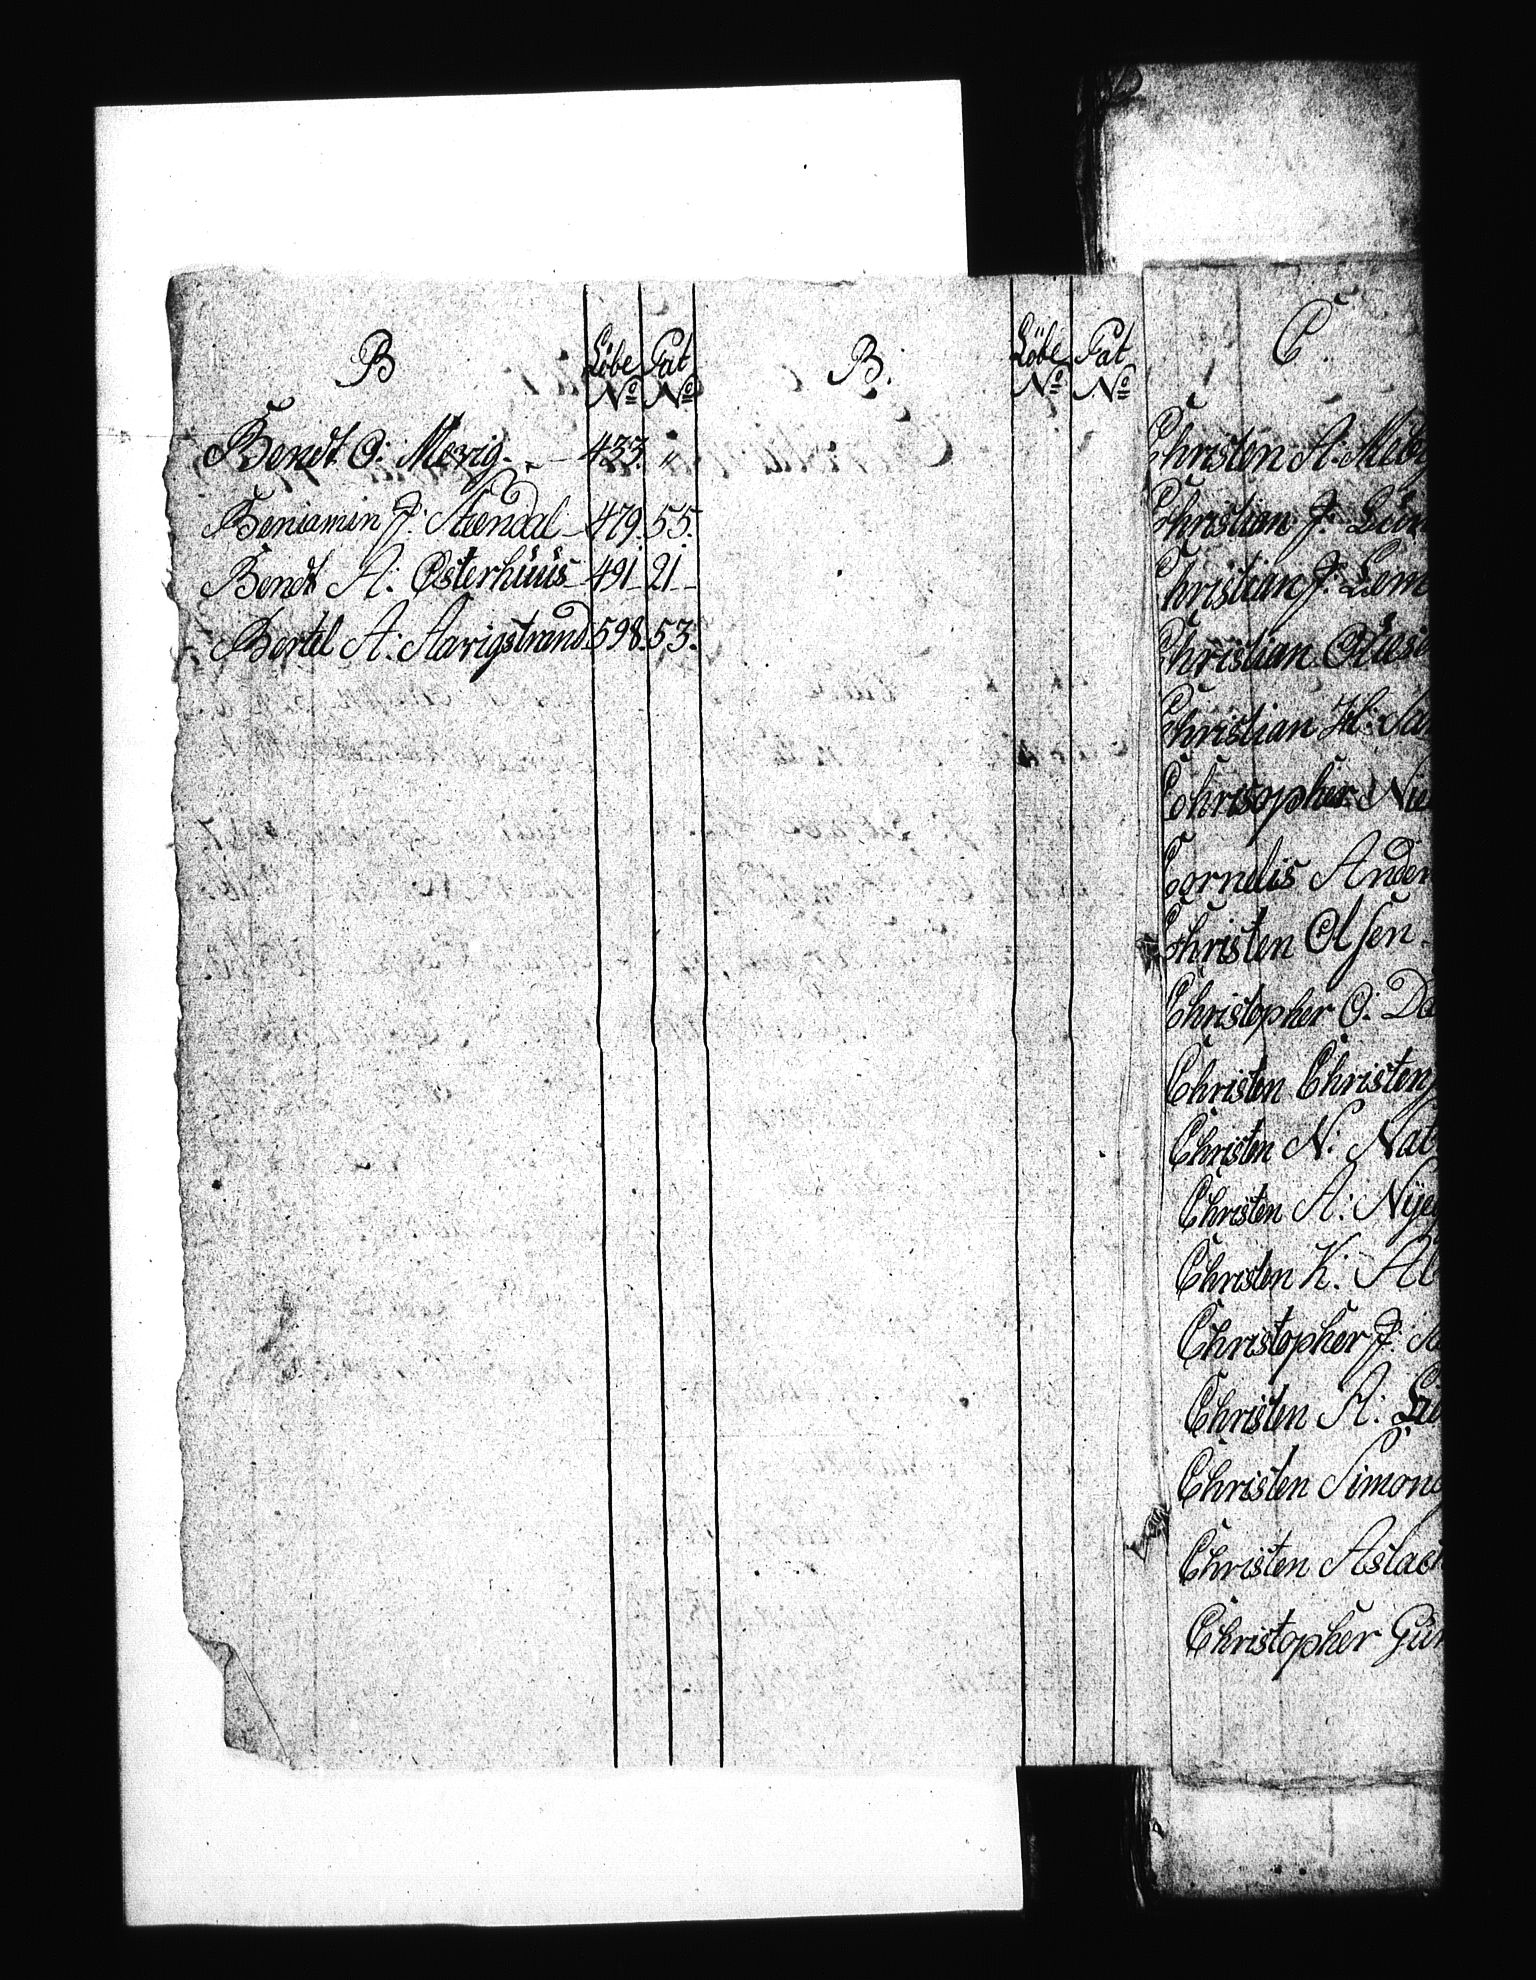 B Löbe No Pat No B. Löbe No Pat No
Bendt O: Mevig. 433. "
Beniamin J: Steendal 479. 55.
Bendt A: Østerhüüs 491 21
Bertel A: Aavigstrand 598. 53.
C
Christen A:
Christian J:
Christian J:
Christian
Christian H:
Christopher Nie
Cornelis Ander
Christen Olsen
Christopher O: Da
Christen Christens
Christen N: Nat
Christen A: Nÿe
Christen K: Ab
Christopher J:
Christen A:
Christen Simons
Christen Aslach
Christopher Gün